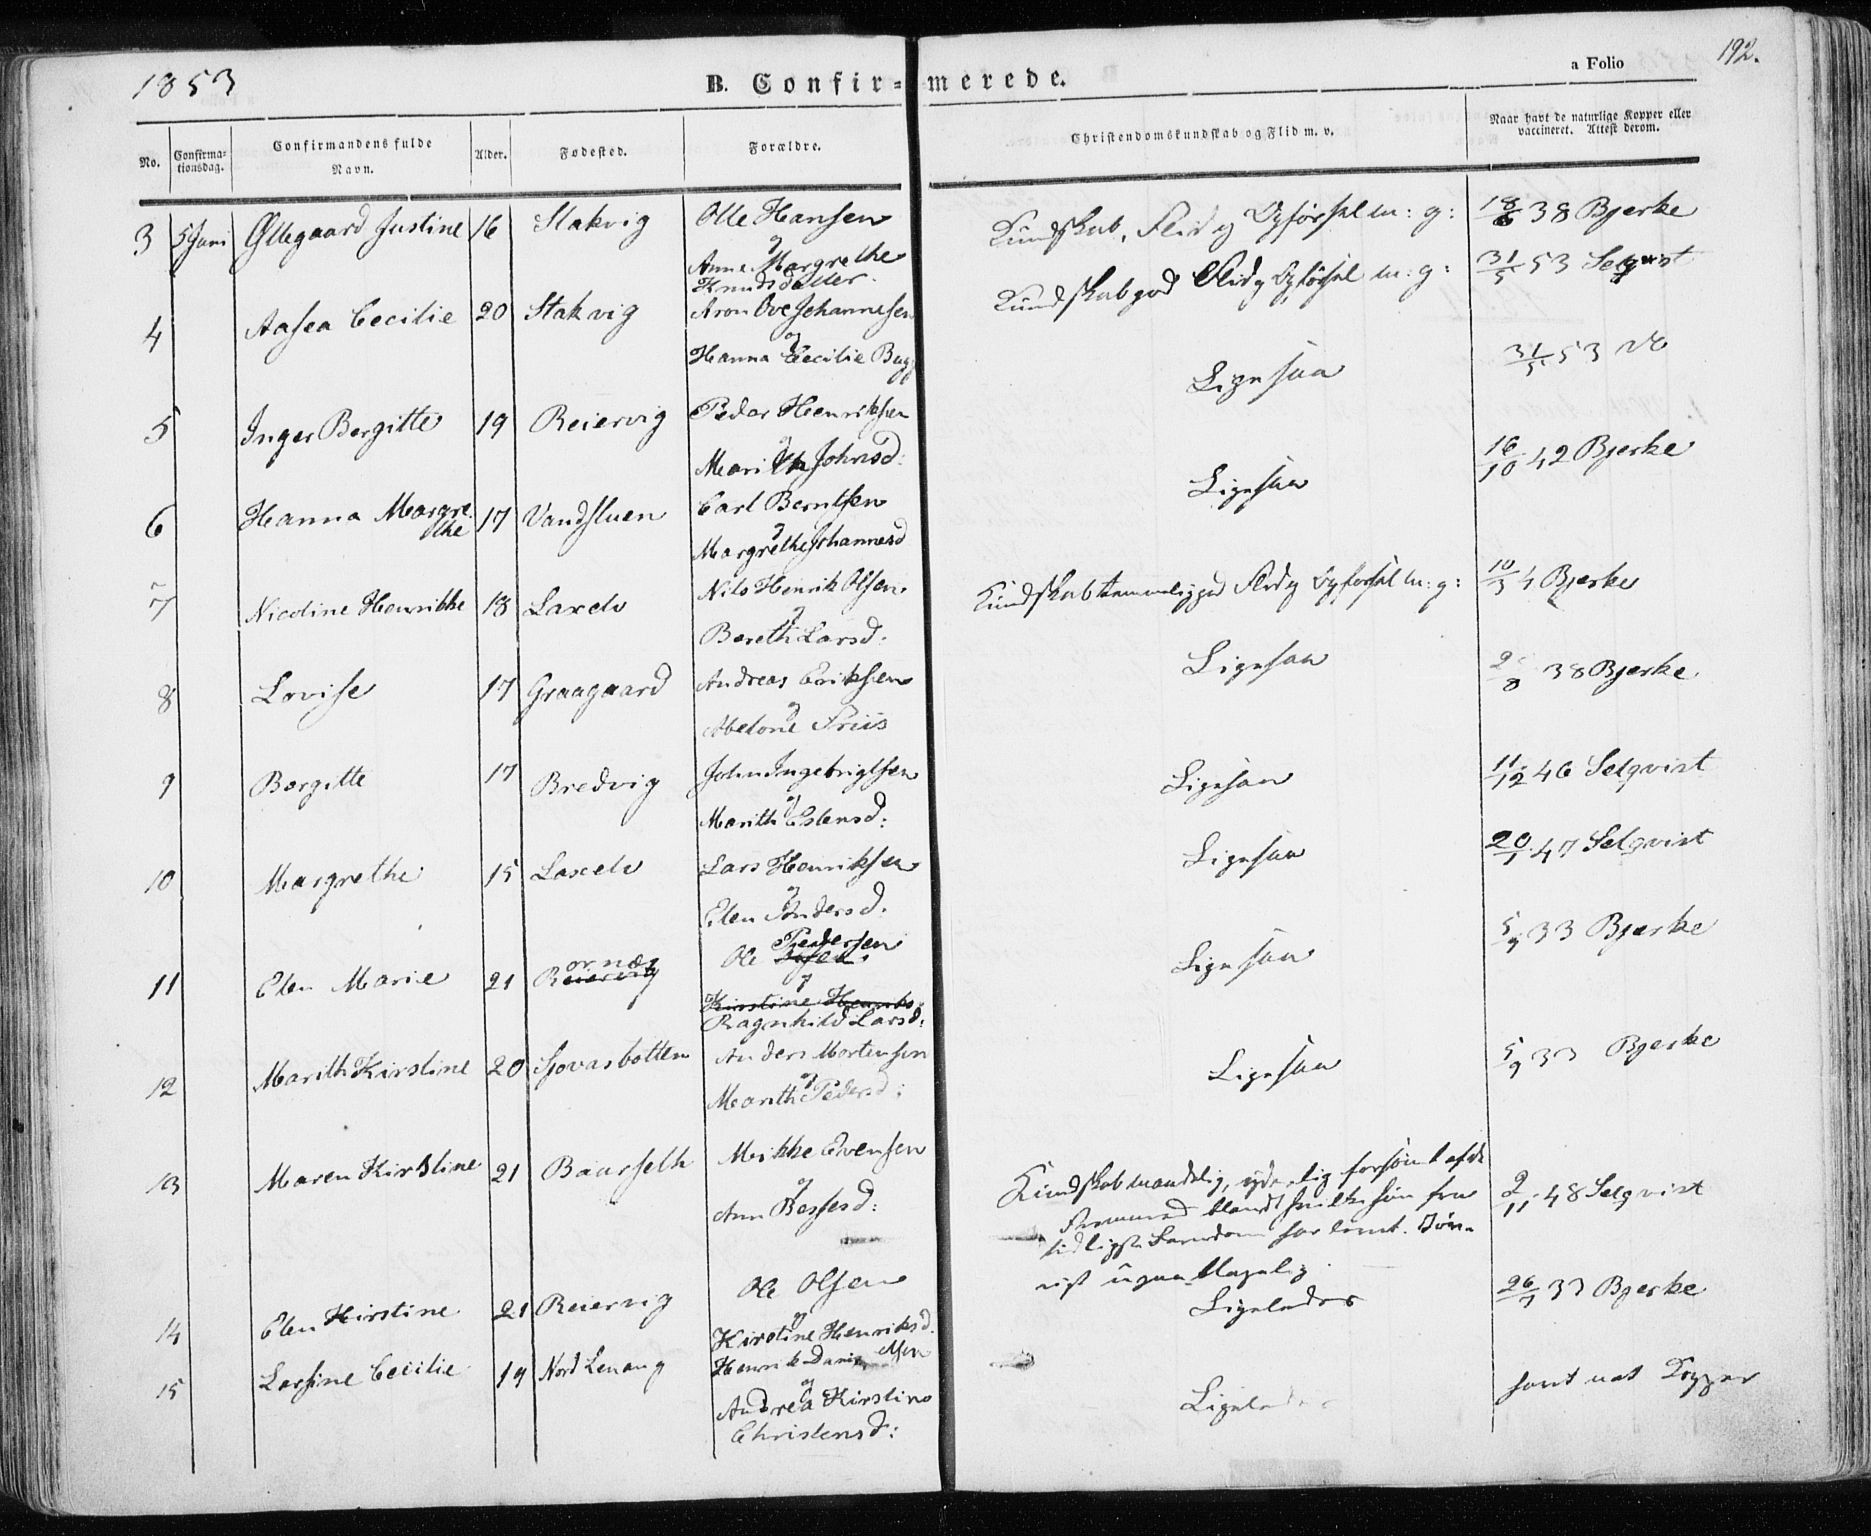 1853
B. Confir=merede.
a Folio
192.
No.
Confirma-
tionsdag.
Confirmandens fulde
Navn.
Alder.
Fødested.
Forældre.
Christendomskundskab og Flid m. v.
Naar havt de naturlige Kopper eller
vaccineret. Attest derom.
3 5 Juni Ollegaard Justine 16 Stakvig Olle Hansen Kundskab, Flid og Opførsel m: g: 18/6 38 Bjerke
og
Anne Margrethe
Knudsdatter.
4 Aasea Cecilie 20 Stakvig Aron Ove Johannesen Kundskab god Flid og Opførsel m: g: 31/5 53 Selqvist
og
Hanna Cecilie Bugg
5 Inger Bergitte 19 Reiervig Peder Henriksen Ligesaa 31/5 53
og
Marith Johnsd:
6 Hanna Margre 17 Vandstuen Carl Berntsen Ligesaa 16/10 42 Bjerke
the
og
Margrethe Johannesd
7 Nicoline Henrikke 18 Laxelv Nils Henrik Olsen Kundskab temmelig god Flid og Opførsel m: g: 10/3 4 Bjerke
og
Bereth Larsd:
8 Lovise 17 Graagaard Andreas Eriksen Ligesaa 2/8 38 Bjerke.
og
Abelone Friis
9 Bergitte 17 Bredvig John Ingebrigtsen Ligesaa 11/12 46 Selqvist
og
Marith Estensd:
10 Margrethe 15 Laxelv Lars Henriksen Ligesaa 20/1 47 Selqvist
og
Elen Andersd.
11 Elen Marie 21 Reiervig ornæs Ole Olsen Pedersen Ligesaa 5/9 33 Bjerke
og
Kirstine Henriks
Ragnhild Larsd:
12 Marith Kirstine 20 Sjovasbotten Anders Mortensen Ligesaa 5/9 33 Bjerke
og
Marith Pedersd:
13 Maren Kirstine 21 Baarseth Mikke Evensen Kundskab maadelig, yderlig forsømt af de 2/11 48 Selqvist
og
Ann Bessesd:
Fremmed blandt hvilke hun fra
tidligste Barndom har tient. Iøv-
rigt upaaklagelig
14 Elen Kirstine 21 Reiervig Ole Olsen Ligeledes 26/7 33 Bjerke
og
Kirstine Henriksd.
15 Larsine Cecilie 19 Nord Lenang Henrik Danielsen Ligeledes havt nat Kopper
og
Andrea Kirstine
Christensd: